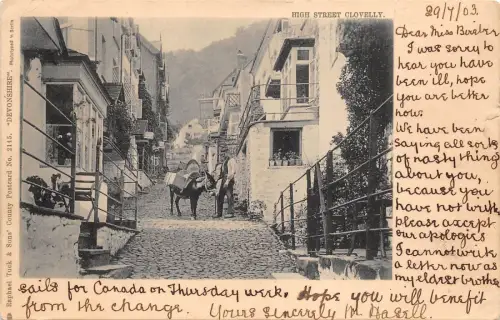 29/7/03.
HIGH STREET CLOVELLY.
Raphael Tuck & Sons' County Postcard No. 2115. "DEVONSHIRE".
Dear Miss Barber
I was sorry to
hear you have
been ill, hope
you are better
now.
We have been
saying all sorts
of nasty things
about you,
because you
have not writt
please accept
our apologies
I cannot write
a letter now as
my eldest brother
sails for Canada on Thursday week. Hope you will benefit
from the change. Yours Sincerely M. Hasell.